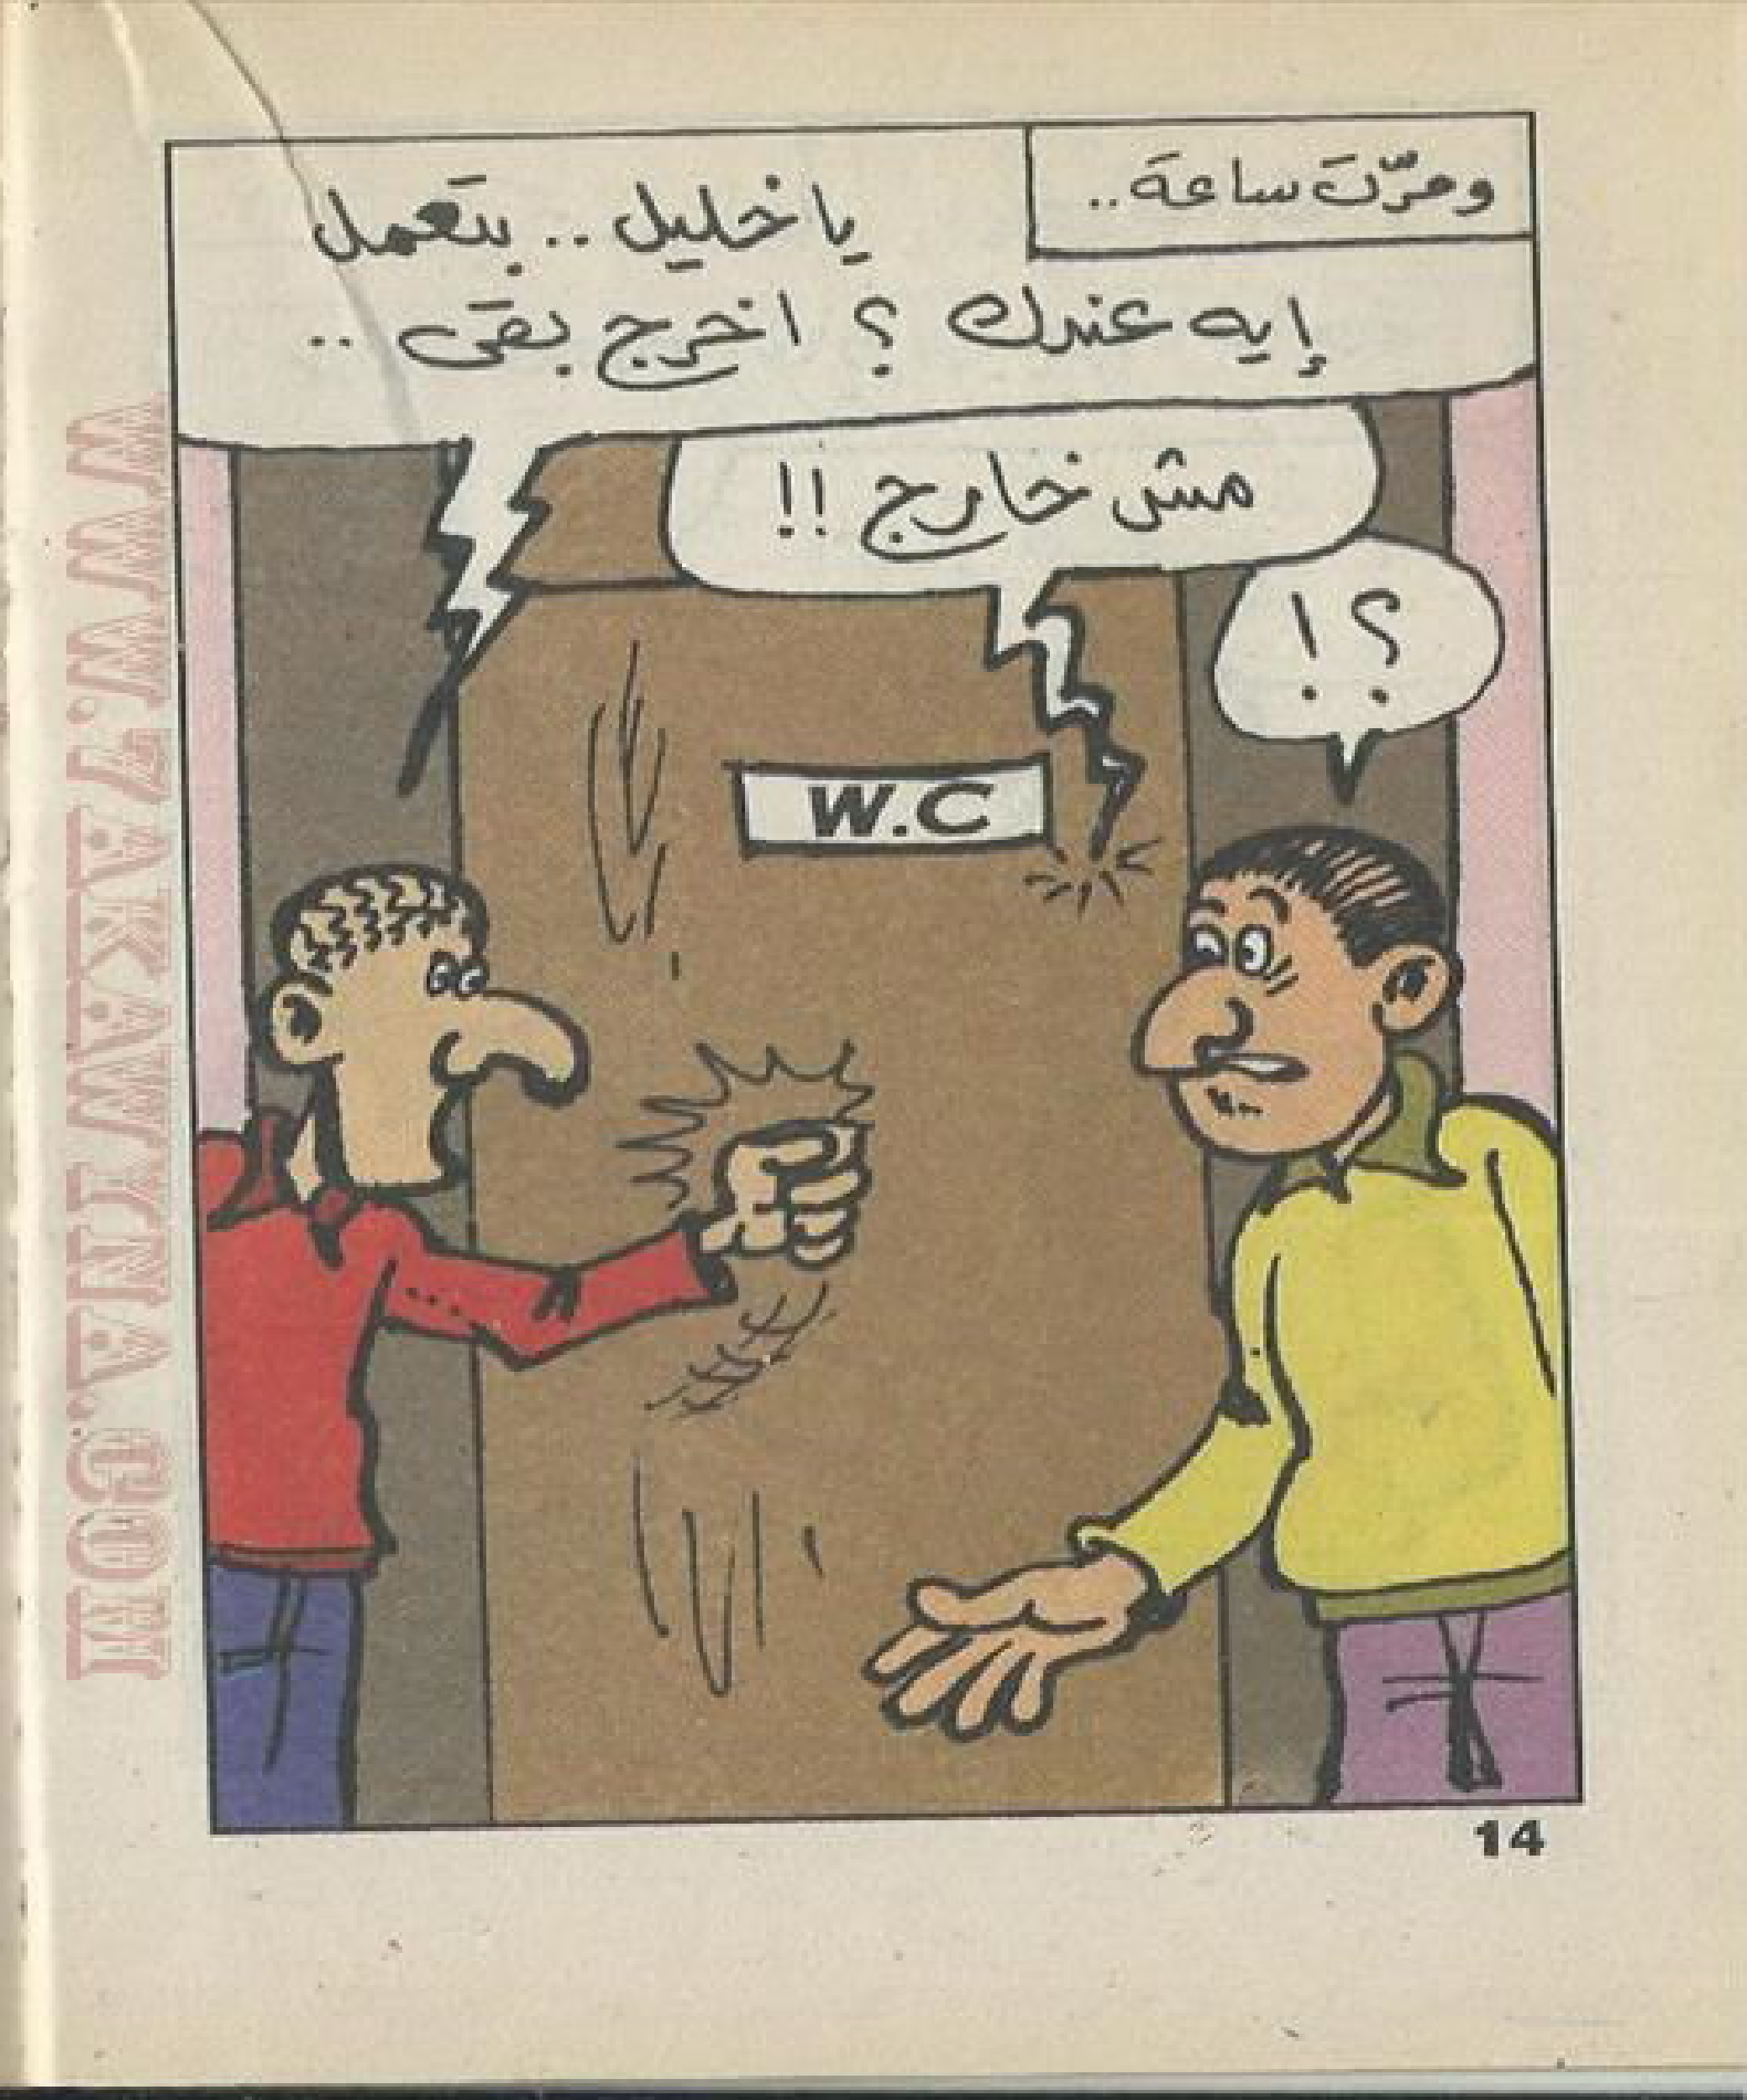 ومرّت ساعة..
يا خليل.. بتعمل
إيه عندك؟ اخرج بقى..
مش خارج!!
؟!
W.C
14
WWW.7AKAWINA.COM